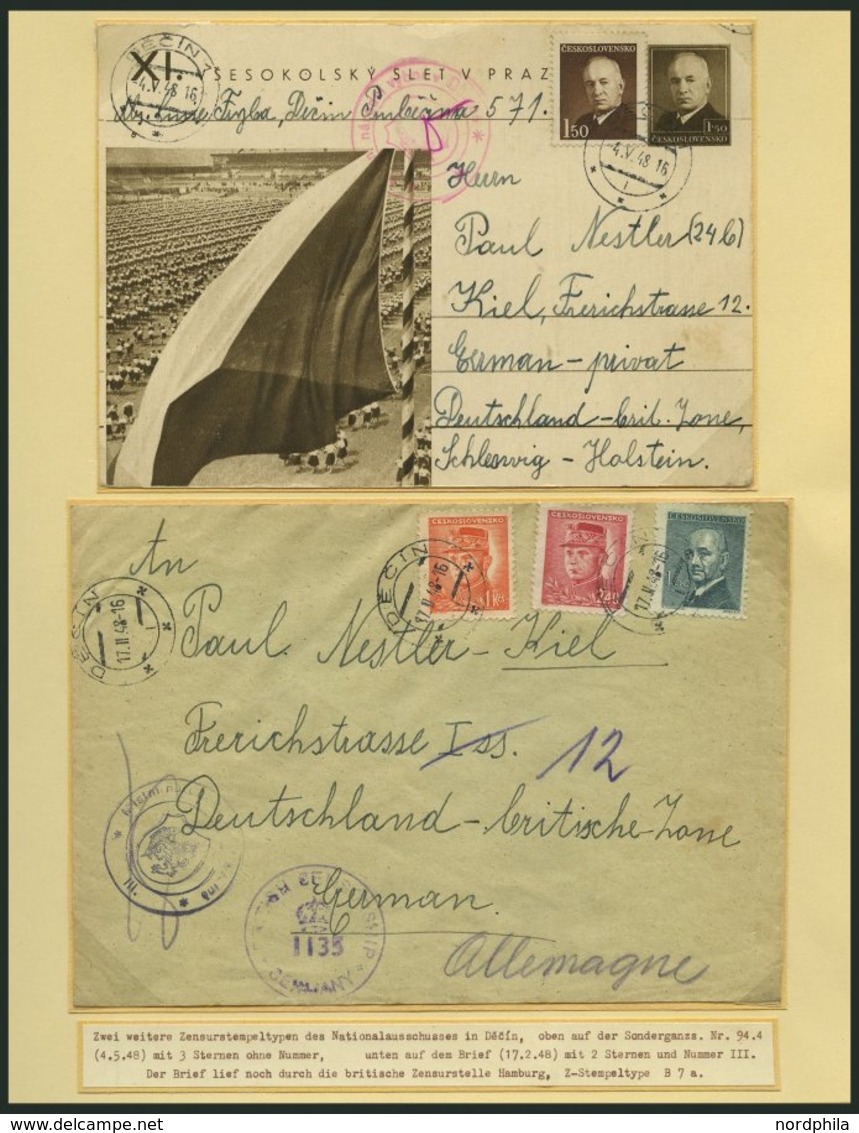 XI. VŠESOKOLSKÝ SLET V PRAZ
DĚČÍN
4.V.48 16
Děčín 571.
ČESKOSLOVENSKO
1.50
1.50
ČESKOSLOVENSKO
4.V.48 16
Herrn
Paul Nestler (24b)
Kiel, Frerichstrasse 12.
German - privat
Deutschland - brit. Zone,
Schleswig - Holstein.
ČESKOSLOVENSKO
1 Kčs
ČESKOSLOVENSKO
2.40
ČESKOSLOVENSKO
DĚČÍN
17.II.48-16
DĚČÍN
17.II.48-16
17.II.48-16
An
Paul Nestler - Kiel
Frerichstrasse Iss. 12
Deutschland - britische - Zone
German
Allemagne
III.
1135
GERMANY
Zwei weitere Zensurstempeltypen des Nationalausschusses in Děčín, oben auf der Sonderganzs. Nr. 94.4
(4.5.48) mit 3 Sternen ohne Nummer, unten auf dem Brief (17.2.48) mit 2 Sternen und Nummer III.
Der Brief lief noch durch die britische Zensurstelle Hamburg, Z-Stempeltype B 7 a.
nordphila